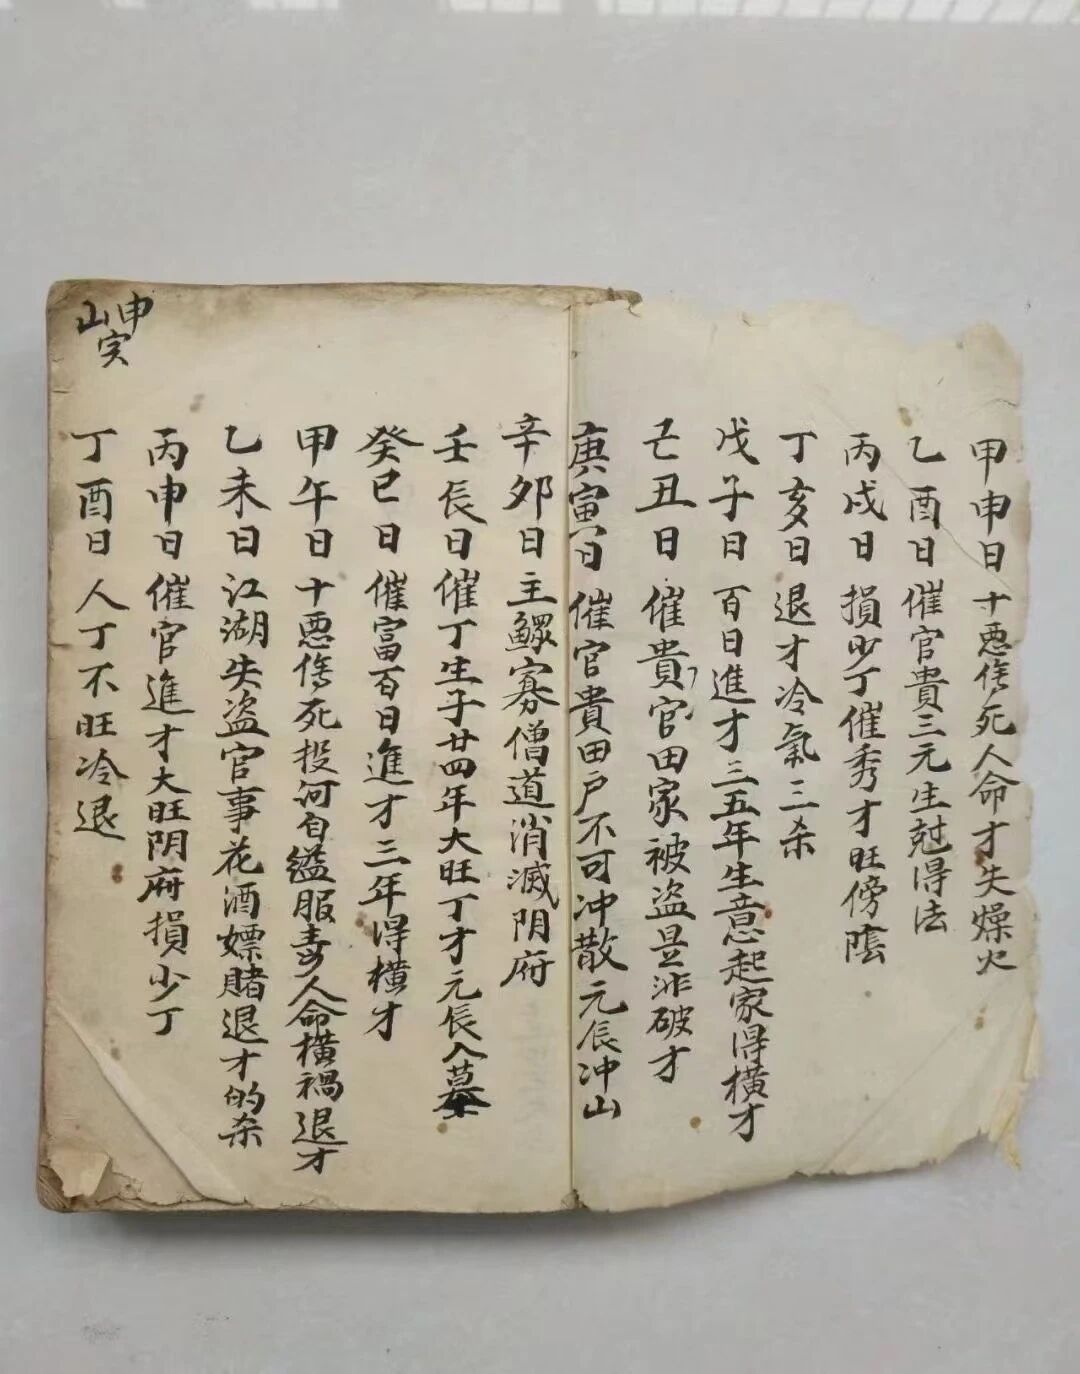 甲申日十悪傷死人命才失燥火
乙酉日催官貴三元生尅得法
丙戍日損少丁催秀才旺傍蔭
丁亥日退才冷氣三杀
戊子日百日進才三五年生意起家得橫才
己丑日催貴官田家被盗是非破才
庚寅日催官貴田戶不可冲散元辰冲山
辛卯日主鰥寡僧道消滅阴府
壬辰日催丁生子廿四年大旺丁才元辰入墓
癸巳日催富百日進才三年得橫才
甲午日十悪傷死投河自縊服毒人命橫禍退才
乙未日江湖失盗官事花酒嫖賭退才的杀
丙申日催官進才大旺阴府損少丁
丁酉日人丁不旺冷退
申山